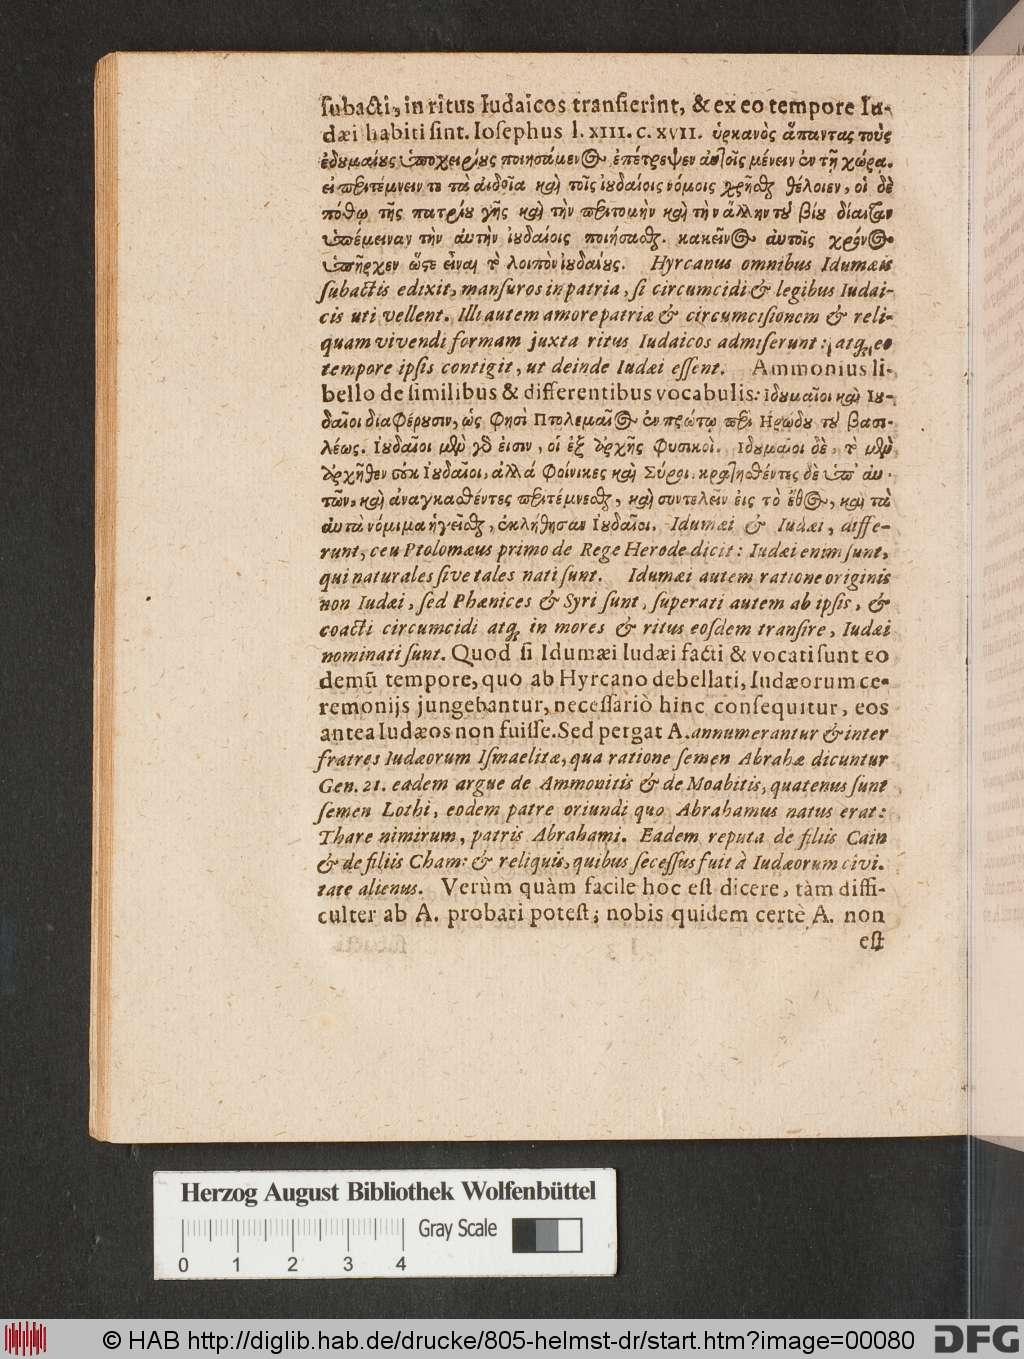 ſubacti, in ritus Iudaicos tranſierint, & ex eo tempore Iu-
dæi habiti ſint. Ioſephus l. XIII. c. XVII. ὑρκανὸς ἅπαντας τοὺς
ἐδυμαίυς ὑποχειρίυς ποιησάμενος ἐπέτρεψεν αὐτοῖς μένειν ἐν τῇ χώρᾳ.
εἰ περιτέμνειν τε τὰ αἰδοῖα καὶ τοῖς ἰυδαίοις νόμοις χρῆσθαι θέλοιεν, οἱ δὲ
πόθῳ τῆς πατρίυ γῆς καὶ τὴν περιτομὴν καὶ τὴν ἄλλην τῦ βίυ δίαιταν
ὑπέμειναν τὴν αὐτὴν ἰυδαίοις ποιήσασθαι. κακεῖνος αὐτοῖς χρόνος
ὑπῆρχεν ὥςε εἶναι τὸ λοιπὸν ἰυδαίυς. Hyrcanus omnibus Idumæis
ſubactis edixit, manſuros in patria, ſi circumcidi & legibus Iudai-
cis uti vellent. Illi autem amore patriæ & circumciſionem & reli-
quam vivendi formam juxta ritus Iudaicos admiſerunt: atq; eo
tempore ipſis contigit, ut deinde Iudæi eſſent. Ammonius li-
bello de ſimilibus & differentibus vocabulis: Ιδυμαῖοι καὶ Ιυ-
δαῖοι διαφέρυσιν, ὡς φησὶ Πτολεμαῖος ἐν πρώτῳ περὶ Ηρώδυ τῦ βασι-
λέως. Ιυδαῖοι μὲν γάρ ἐισιν, οἱ ἐξ ἀρχῆς φυσικοὶ. Ιδυμαῖοι δὲ, τὸ μὲν
ἀρχῆθεν οὐκ Ιυδαῖοι, ἀλλά Φοίνικες καὶ Σύροι. κρατηθέντες δὲ ὑπ' αυ-
τῶν, καὶ ἀναγκασθέντες περιτέμνεσθαι, καὶ συντελεῖν ἐις τὸ ἔθος, καὶ τὰ
αυτὰ νόμιμα ἡγεῖσθαι, ἐκλήθησαν Ιυδαῖοι. Idumæi & Iudæi, diffe-
runt, ceu Ptolomæus primo de Rege Herode dicit: Iudæi enim ſunt,
qui naturales ſive tales nati ſunt. Idumæi autem ratione originis
non Iudæi, ſed Phœnices & Syri ſunt, ſuperati autem ab ipſis, &
coacti circumcidi atq; in mores & ritus eoſdem tranſire, Iudæi
nominati ſunt. Quod ſi Idumæi Iudæi facti & vocati ſunt eo
demū tempore, quo ab Hyrcano debellati, Iudæorum ce-
remonijs jungebantur, neceſſariò hinc conſequitur, eos
antea Iudæos non fuiſſe. Sed pergat A. annumerantur & inter
fratres Iudæorum Iſmaelitæ, qua ratione ſemen Abrahæ dicuntur
Gen. 21. eadem argue de Ammonitis & de Moabitis, quatenus ſunt
ſemen Lothi, eodem patre oriundi quo Abrahamus natus erat:
Thare nimirum, patris Abrahami. Eadem reputa de filiis Cain
& de filiis Cham: & reliquis, quibus ſeceſſus fuit à Iudæorum civi-
tate alienus. Verùm quàm facile hoc eſt dicere, tàm diffi-
culter ab A. probari poteſt; nobis quidem certè A. non
eſt
Herzog August Bibliothek Wolfenbüttel
Gray Scale
0 1 2 3 4
© HAB http://diglib.hab.de/drucke/805-helmst-dr/start.htm?image=00080
DFG